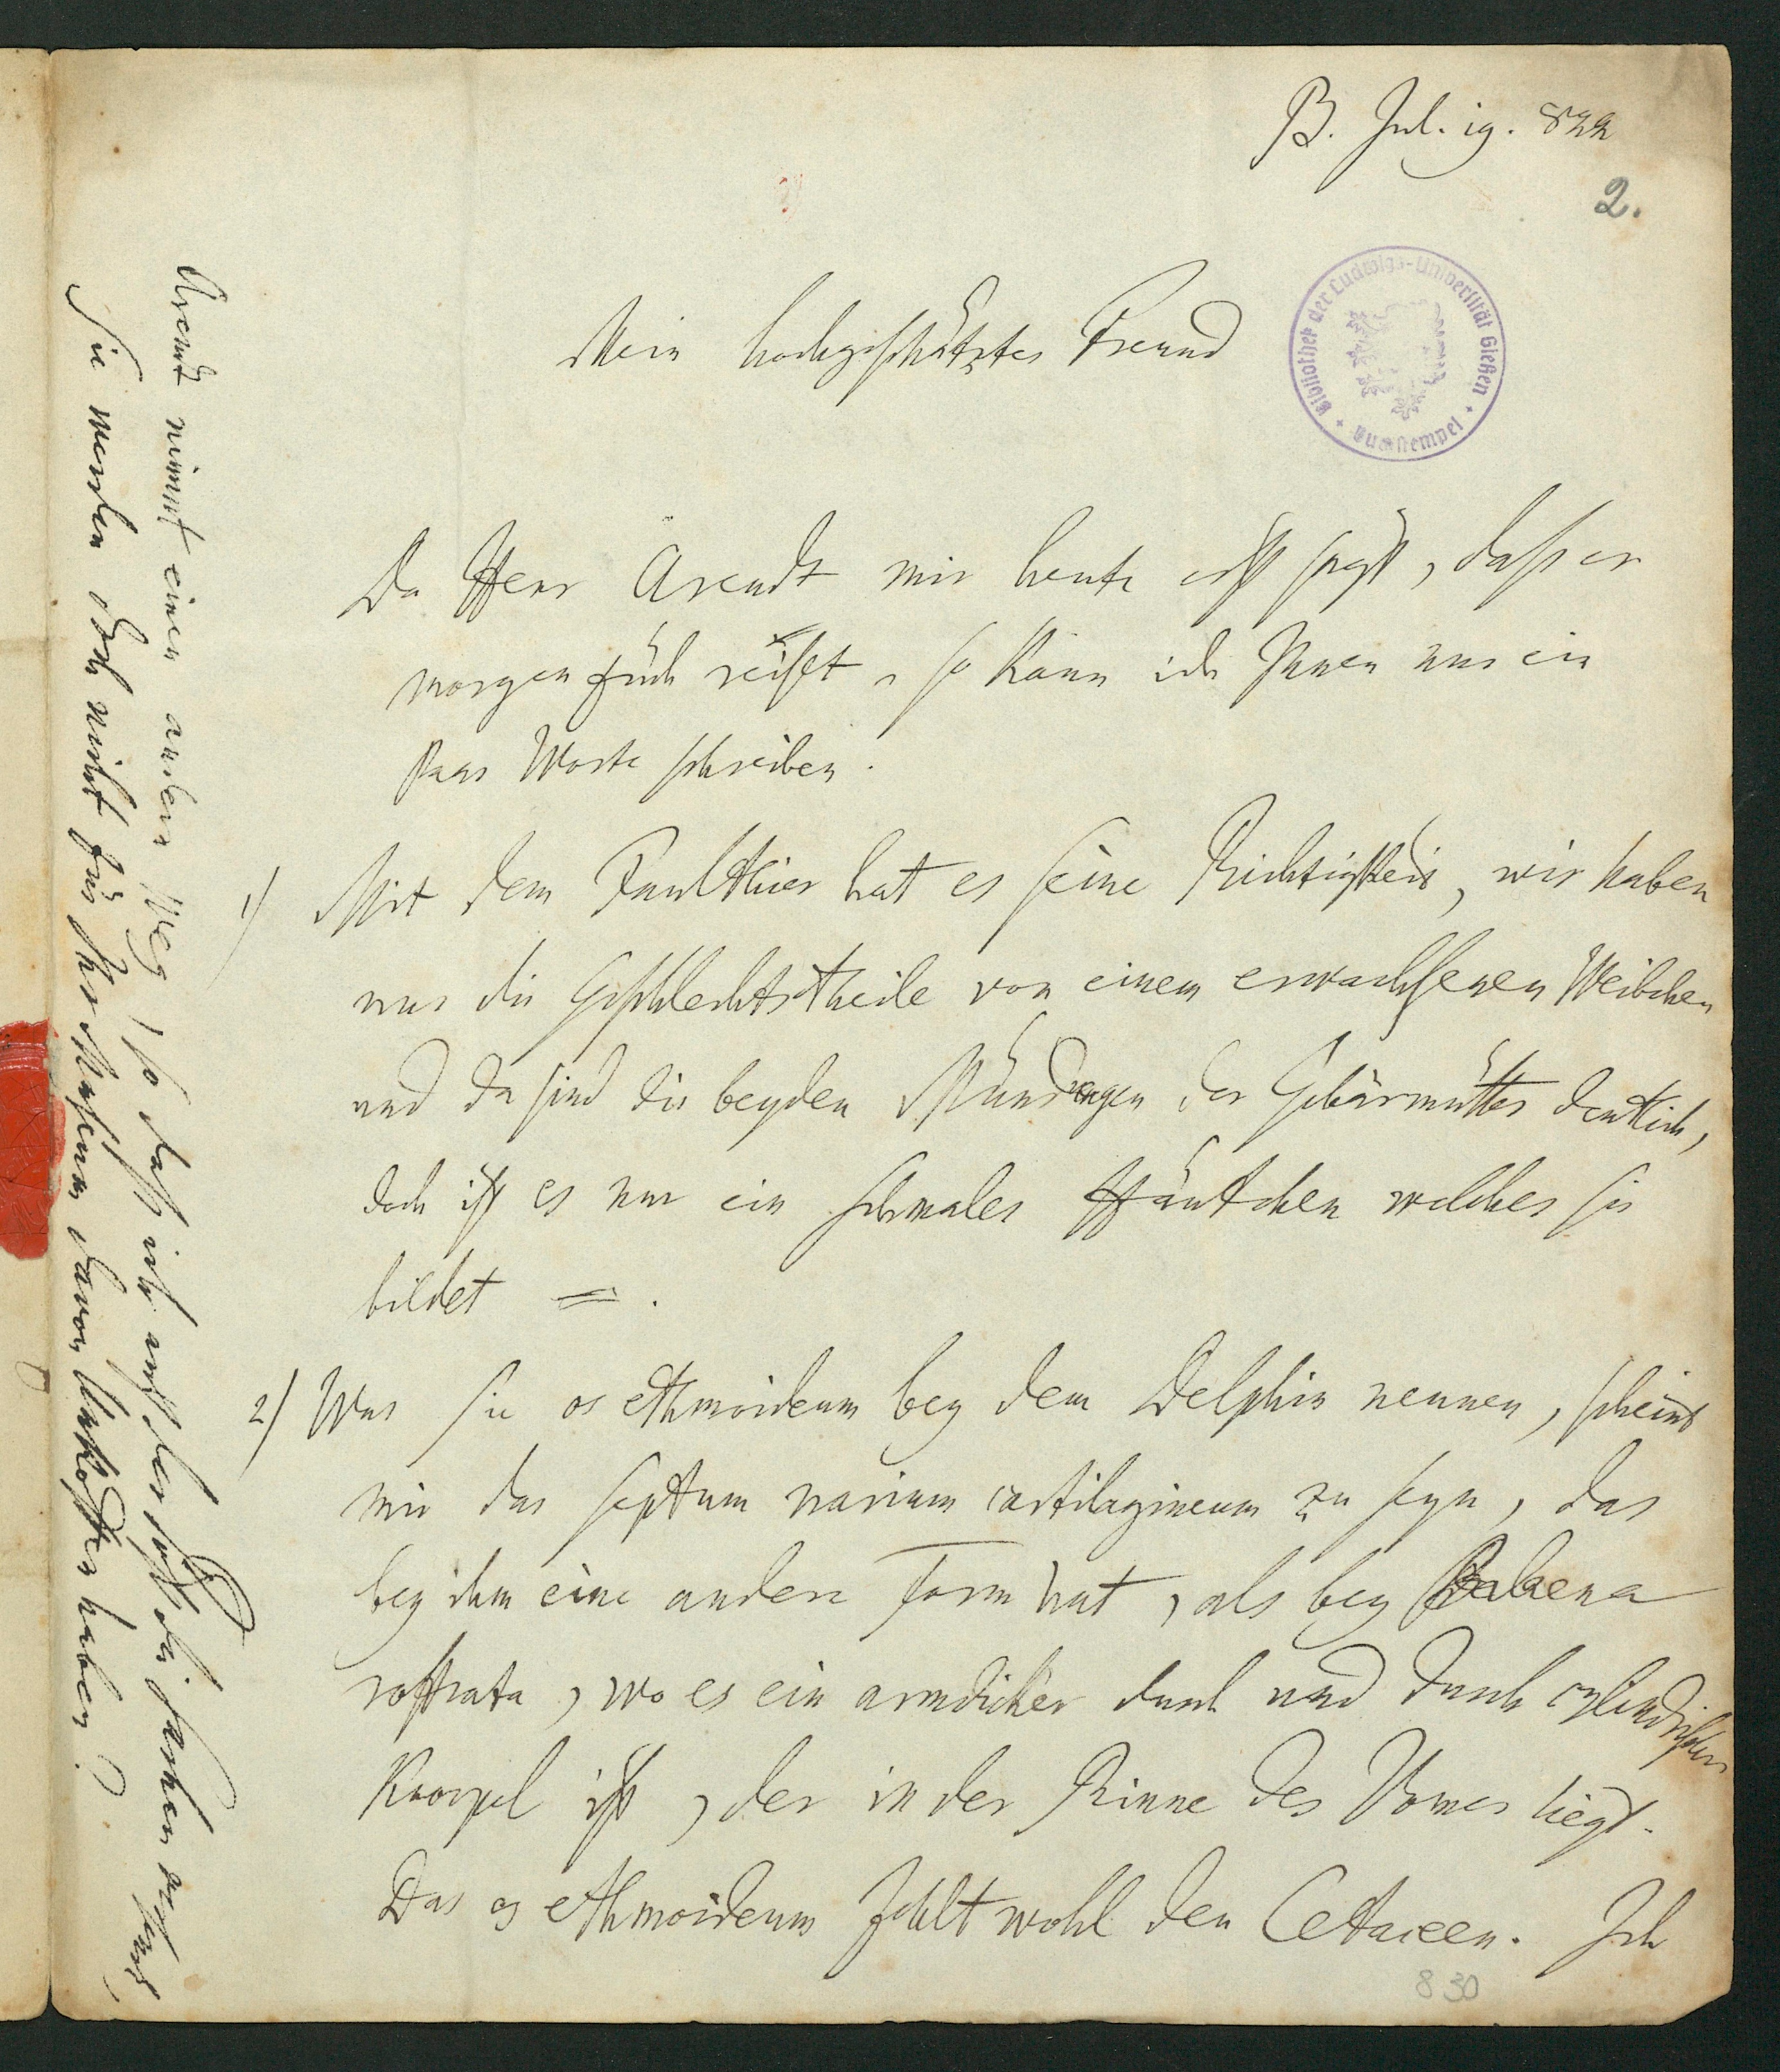 B. Jul. 19. 822
2.
Mein hochgeschätzter Freund
Bibliothek der Ludwigs-Universität Gießen
Buchstempel
Da Herr Arendt mir heute erst sagt, daß er
morgen früh reiset, so kann ich Ihnen nur ein
Paar Worte schreiben.
1) Mit dem Faulthier hat es seine Richtigkeit, wir haben
nur die Geschlechtstheile von einem erwachsenen Weibchen
und da sind die beyden Mündungen der Gebärmutter deutlich,
doch ist es nur ein schmales Häutchen welches sie
bildet = .
2) Was Sie os ethmoideum bey dem Delphin nennen, scheint
mir das septum narium cartilagineum zu seyn, das
bey ihm eine andere Form hat, als bey Balaena
rostrata, wo es ein armdicker durch und durch cylindrischer
Knorpel ist, der in der Rinne des Vomer liegt.
Das os ethmoideum fehlt wohl den Cetaceen. Ich
830
Arendt nimmt einen andern Weg, so daß ich auf der Post die
Sie werden doch nicht für Ihr Museum davon Unkosten haben?